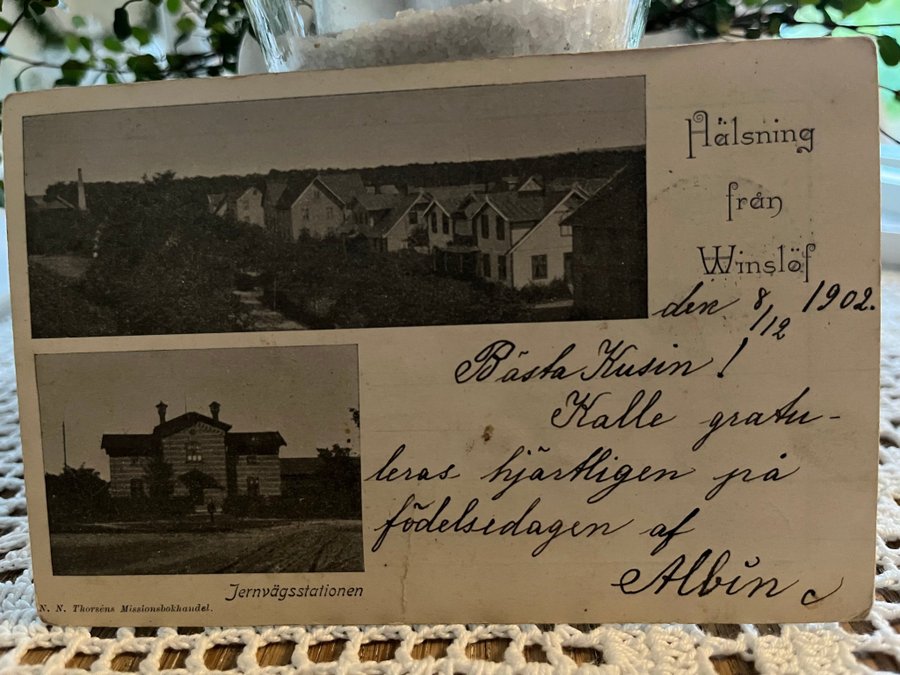 Hälsning
från
Winslöf
den 8/12 1902.
Bästa Kusin!
Kalle gratu-
leras hjärtligen på
födelsedagen af
Albin
Jernvägsstationen
N. N. Thorséns Missionsbokhandel.